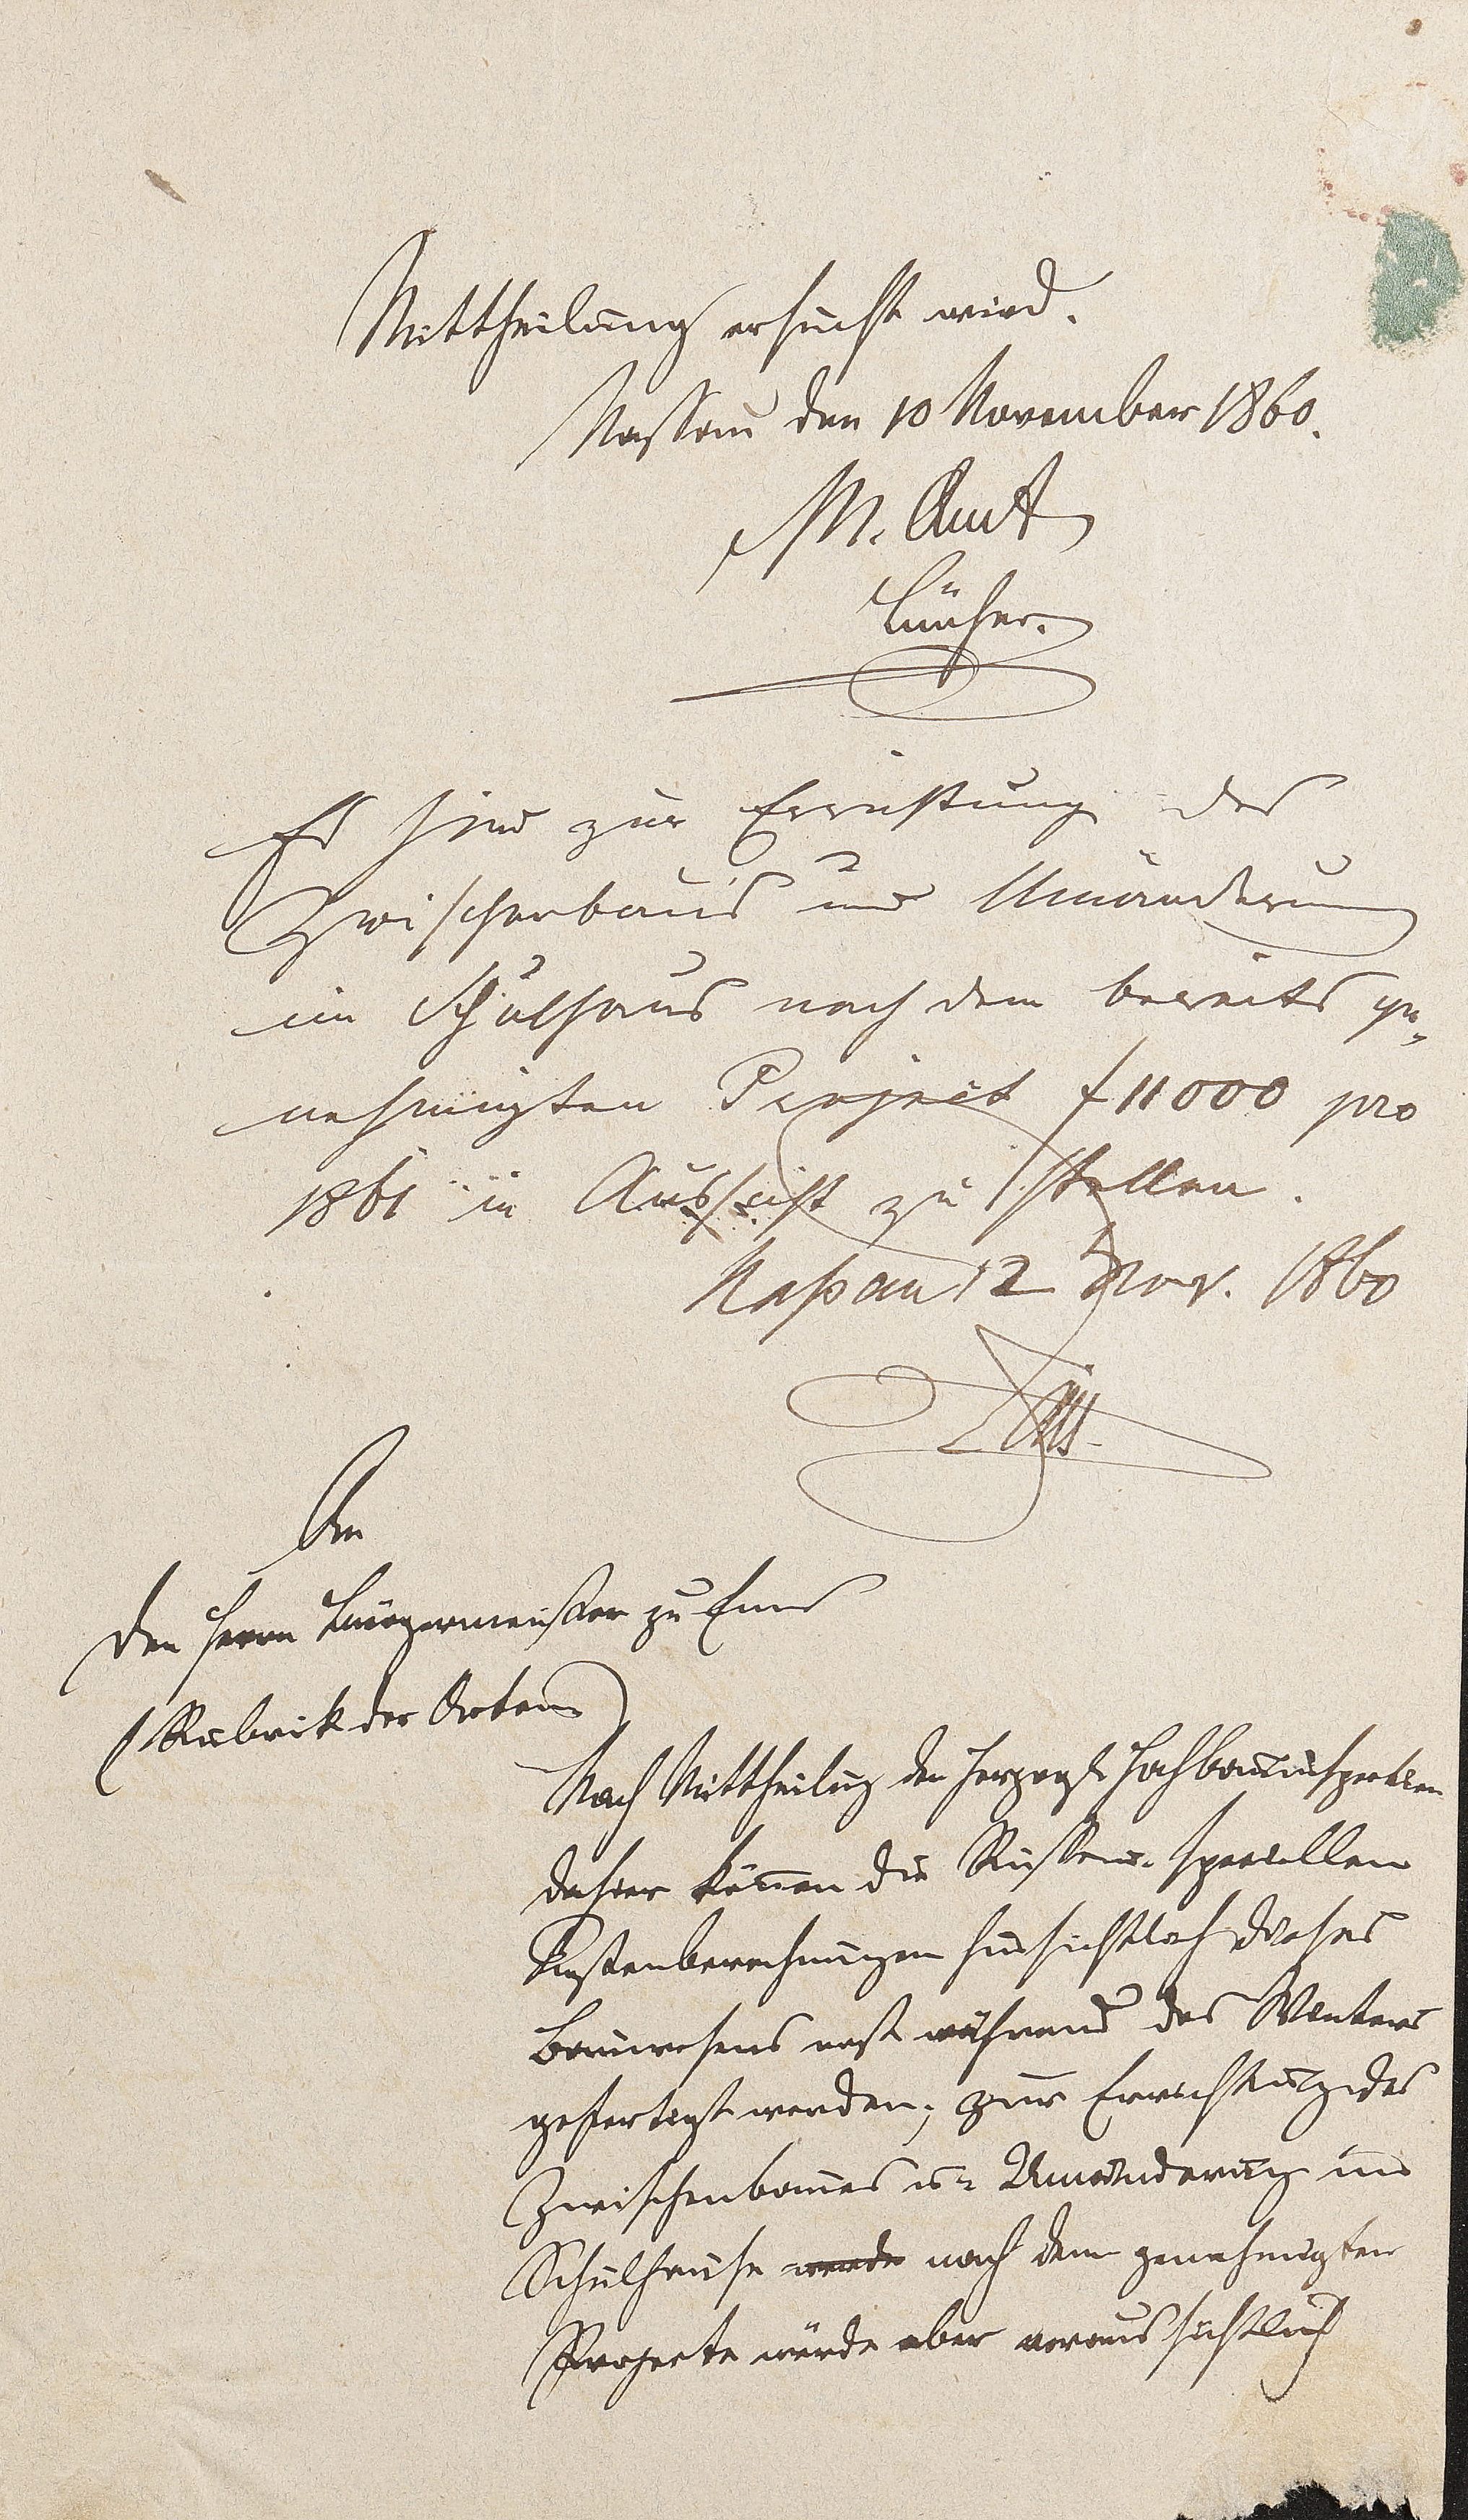 Mittheilung ersucht wird.
Nassau den 10 November 1860.
M. Amt
Es sind zur Errichtung des
Zwischenbau's und Umänderung
im Schulhaus nach dem bereits ge-
nehmigten Project f 11000 pro
1861 in Aussicht zu stellen.
Naßau 12 Nov. 1860
An
den Herrn Bürgermeister zu Ems
(Rubrik der Acten)
Nach Mittheilung der Herzogl. Hochbauinspection
dahier können die Risse u. speciellen
Kostenberechnungen hinsichtlich dieses
Bauwesens erst während des Winters
gefertigt werden; zur Errichtung des
Zwischenbaues u. Umänderung im
Schulhause werde nach dem genehmigten
Projecte würde aber voraussichtlich